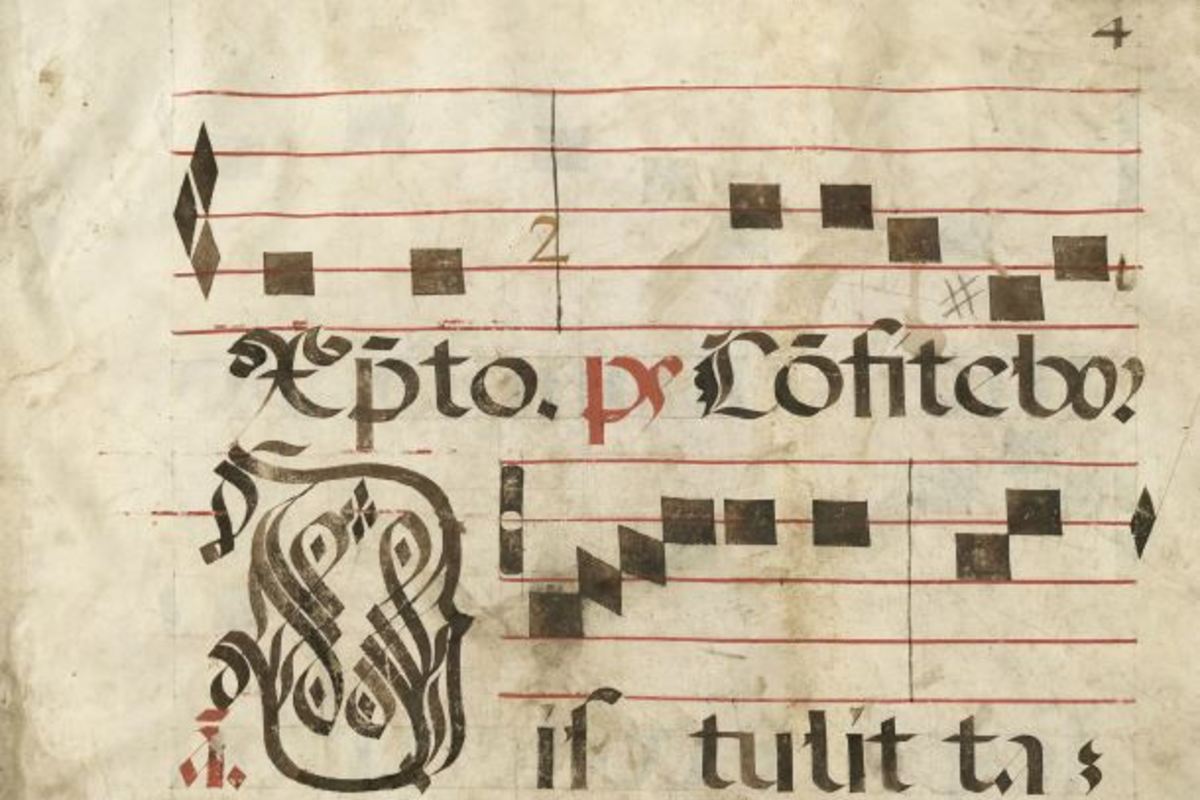 4
2
Xp̄to. ps Cōfitebor
is tulit ta: